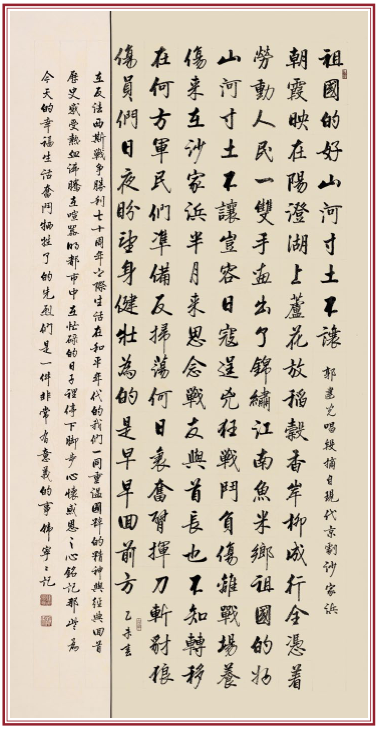 祖國的好山河寸土不讓
郭建光唱段摘自現代京劇沙家浜
朝霞映在陽澄湖上蘆花放稻穀香岸柳成行全憑着
勞動人民一雙手畫出了錦繡江南魚米鄉祖國的好
山河寸土不讓豈容日寇逞兇狂戰鬥負傷離戰場養
傷來在沙家浜半月來思念戰友與首長也不知轉移
在何方軍民們準備反掃蕩何日裏奮臂揮刀斬豺狼
傷員們日夜盼望身健壯為的是早早回前方
乙未春
在反法西斯戰爭勝利七十周年之際生活在和平年代的我們一同重溫國粹的精神與經典回首
歷史感受熱血沸騰在喧嚣的都市中在忙碌的日子裡停下脚步心懷感恩之心銘記那些為
今天的幸福生活奮鬥犧牲了的先烈們是一件非常有意義的事